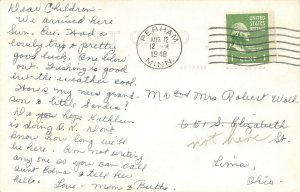 Dear Children-
We arrived here
Sun. Eve. Had a
lovely trip & pretty
good luck. One blow
out. Fishing is good
but the weather cool.
How's my new grand-
son & little Sandra!
Do hope Kathleen
is doing O.K. Don't
know how long we'll
be here. Am not writing
any one so you can call
Aunt Edna & tell her
hello.
Love - Mom & Butts
PERHAM
AUG 12
12
1948
MINN.
UNITED STATES
POSTAGE
1 CENT
Mr and Mrs Robert Wolf.
651 S. Elizabeth
St.
not here
Lima,
Ohio.